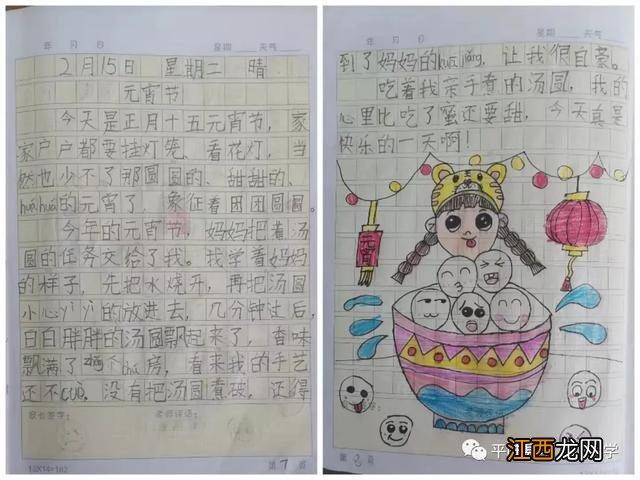 年 月 日 星期 天气
2月15日 星期二 晴
元宵节
今天是正月十五元宵节，家
家户户都要挂灯笼、看花灯，当
然也少不了那圆圆的、甜甜的、
huá huá的元宵了，象征着团团圆圆。
今年的元宵节，妈妈把煮汤
圆的任务交给了我。我学着妈妈
的样子，先把水烧开，再把汤圆
小心yì yì的放进去，几分钟过后，
白白胖胖的汤圆飘起来了，香味
飘满了整个chú房，看来我的手艺
还不cuò。没有把汤圆煮破，还得
家长签字： 老师评语：
13X14=182
第 7 页
年 月 日 星期 天气
到了妈妈的kuā jiǎng，让我很自豪。
吃着我亲手煮的汤圆，我的
心里比吃了蜜还要甜，今天真是
快乐的一天啊！
元宵
第 8 页
江西龙网